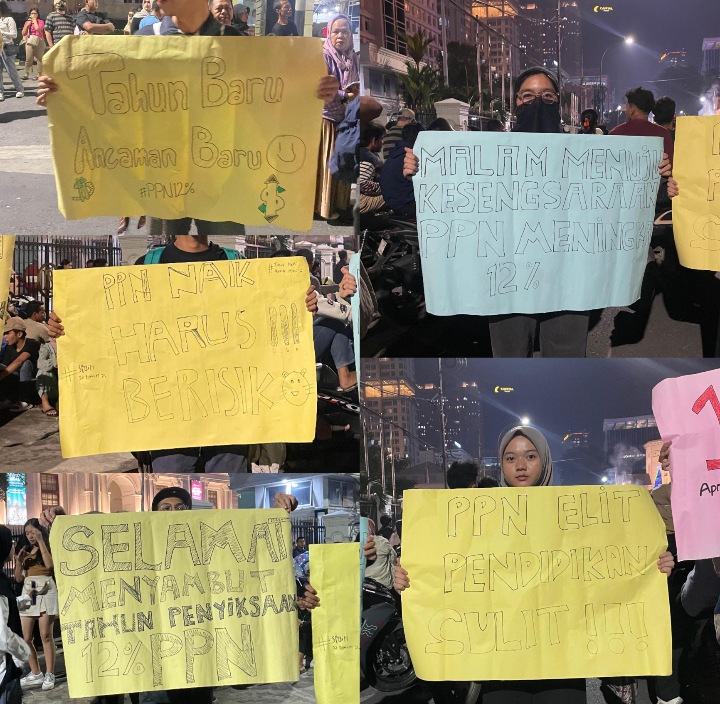 Tahun Baru
Ancaman Baru
#PPN12%
PPN NAIK
HARUS !!!
BERISIK
SELAMAT
MENYAMBUT
TAHUN PENYIKSAAN
12% PPN
MALAM MENUJU
KESENGSARAAN
PPN MENINGKAT
12%
PPN ELIT
PENDIDIKAN
SULIT !!!